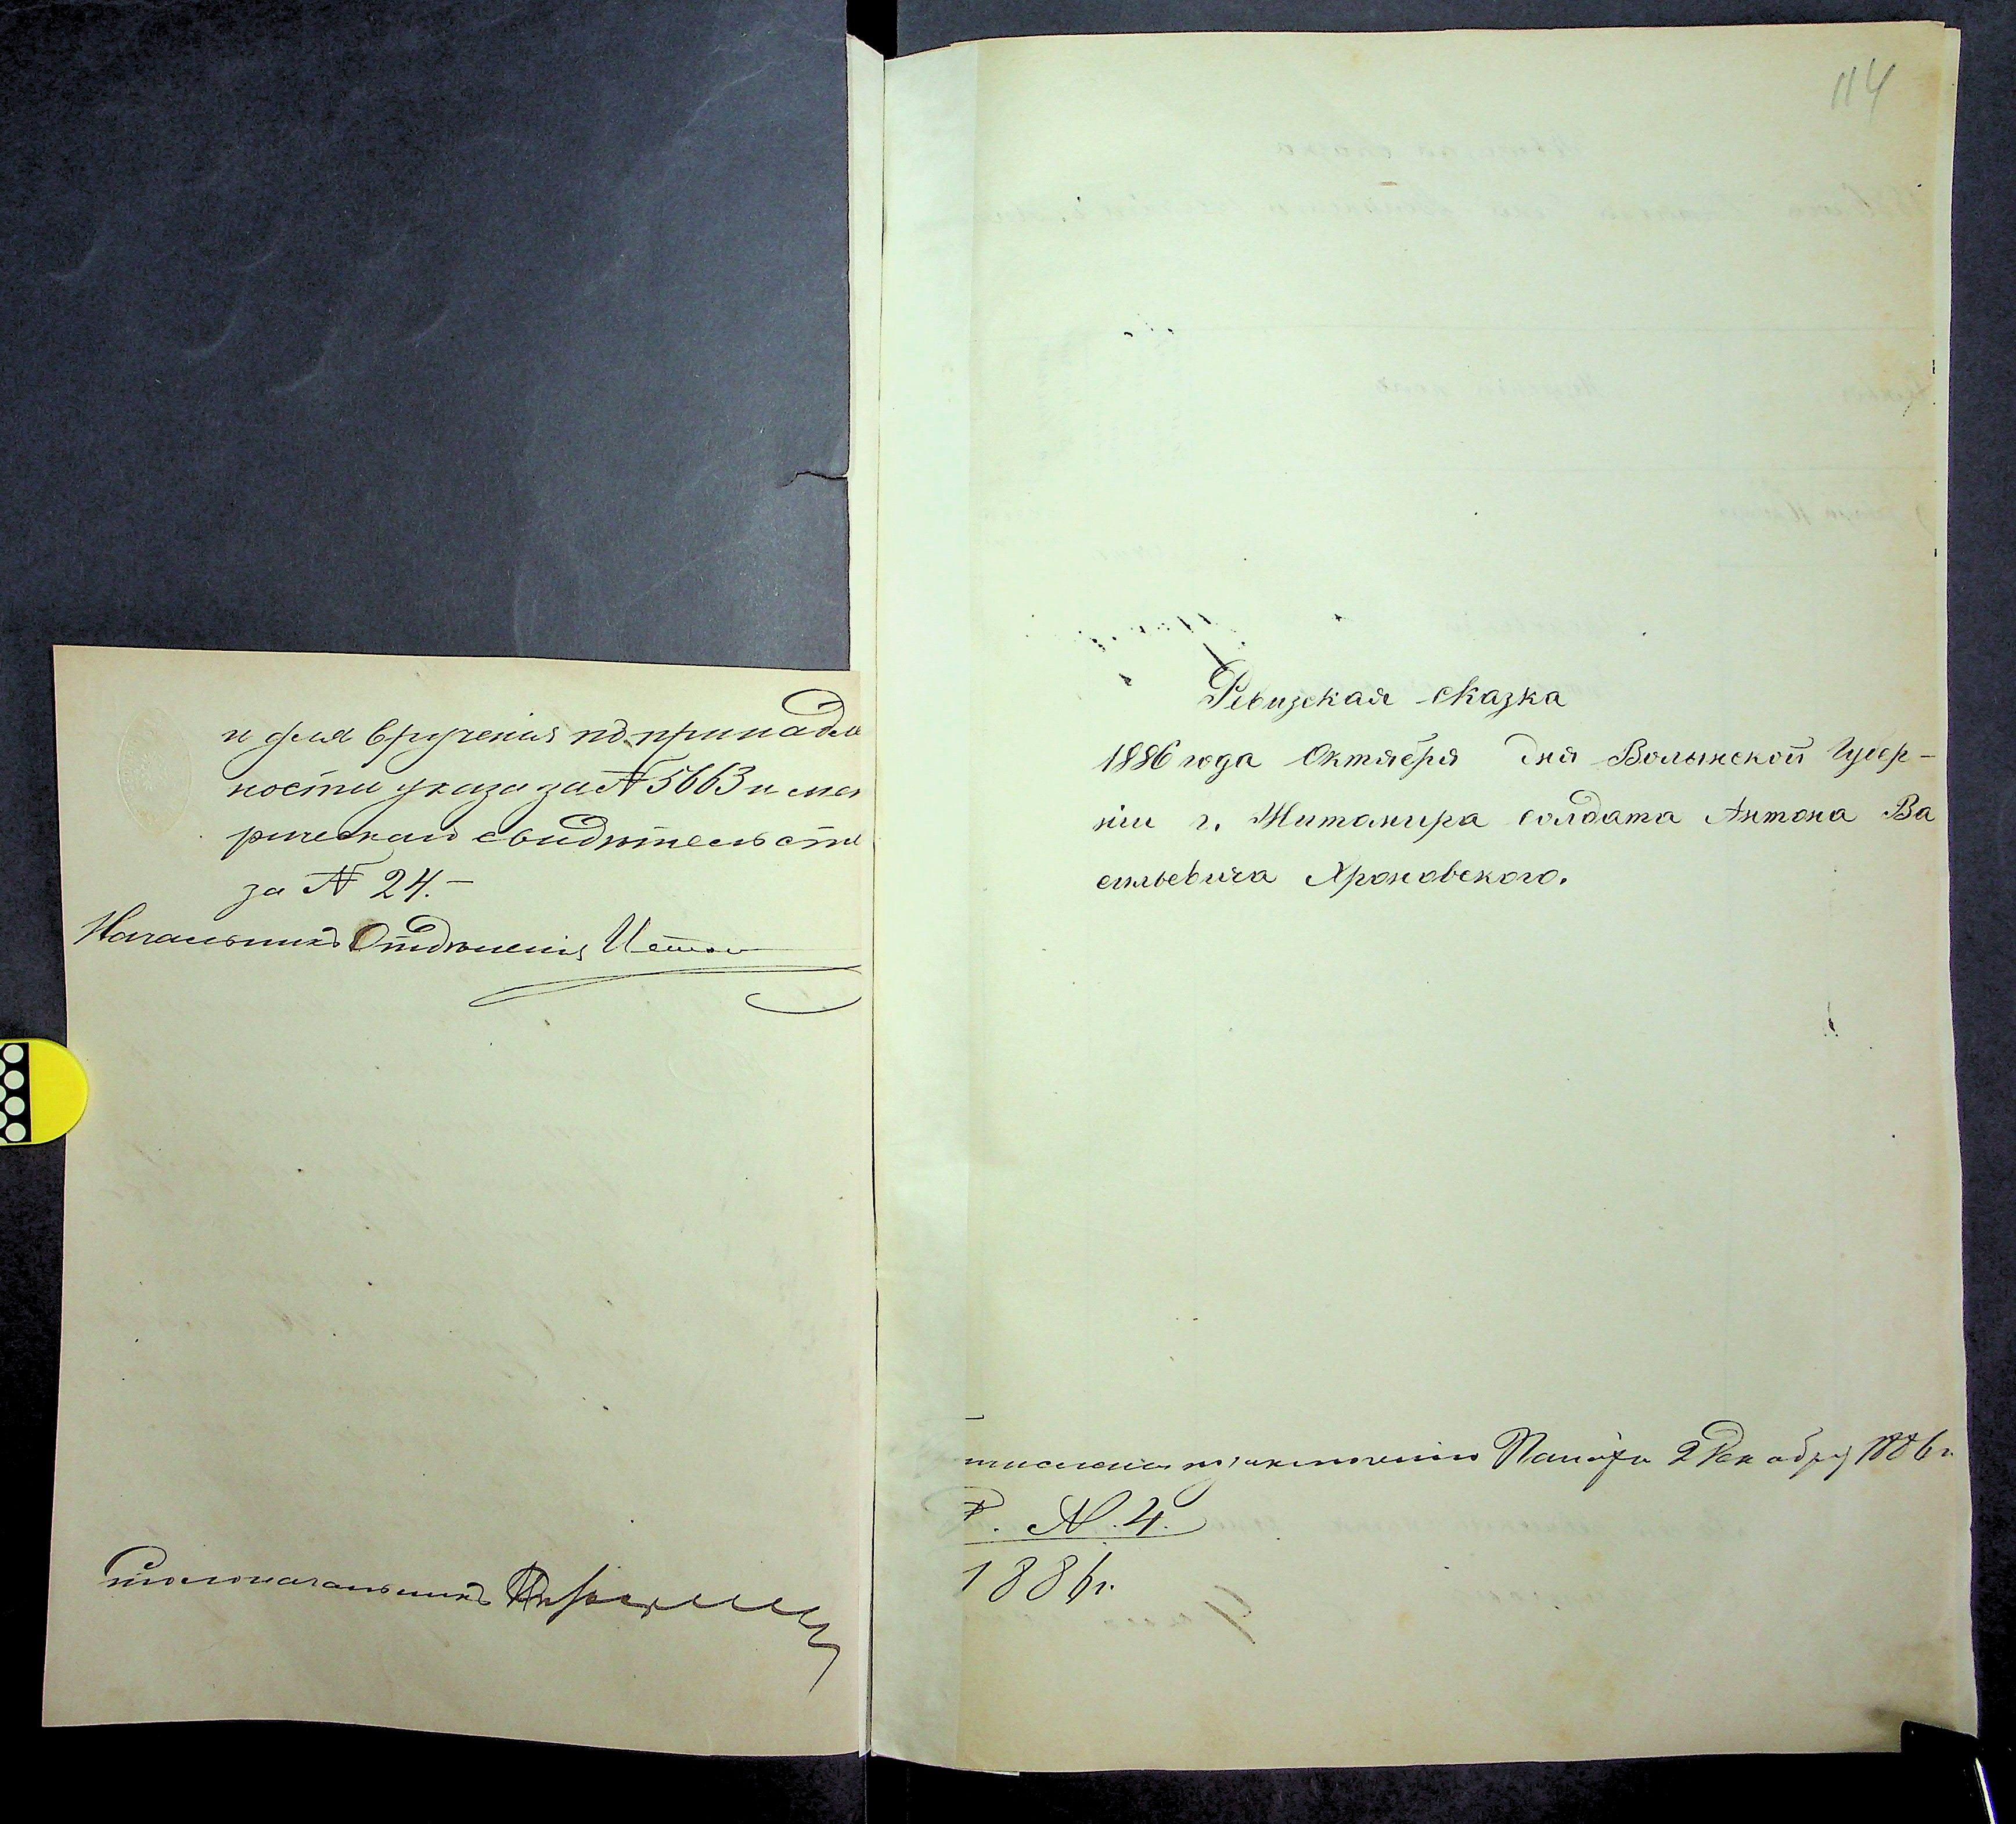 и для врученія по принадле
ности указа за № 5663 и мет
рическаго свидѣтельств
за № 24.-
Начальникъ Отдѣленія
Столоначальникъ
114
Ревизская сказка
1886 года Октября дня Волынской Губер-
ніи г. Житомира солдата Антона Ва
сильевича Хроновскаго.
числена по заключенію Палаты 2 Декабря 1886 г.
Р. N. 4.
1886 г.